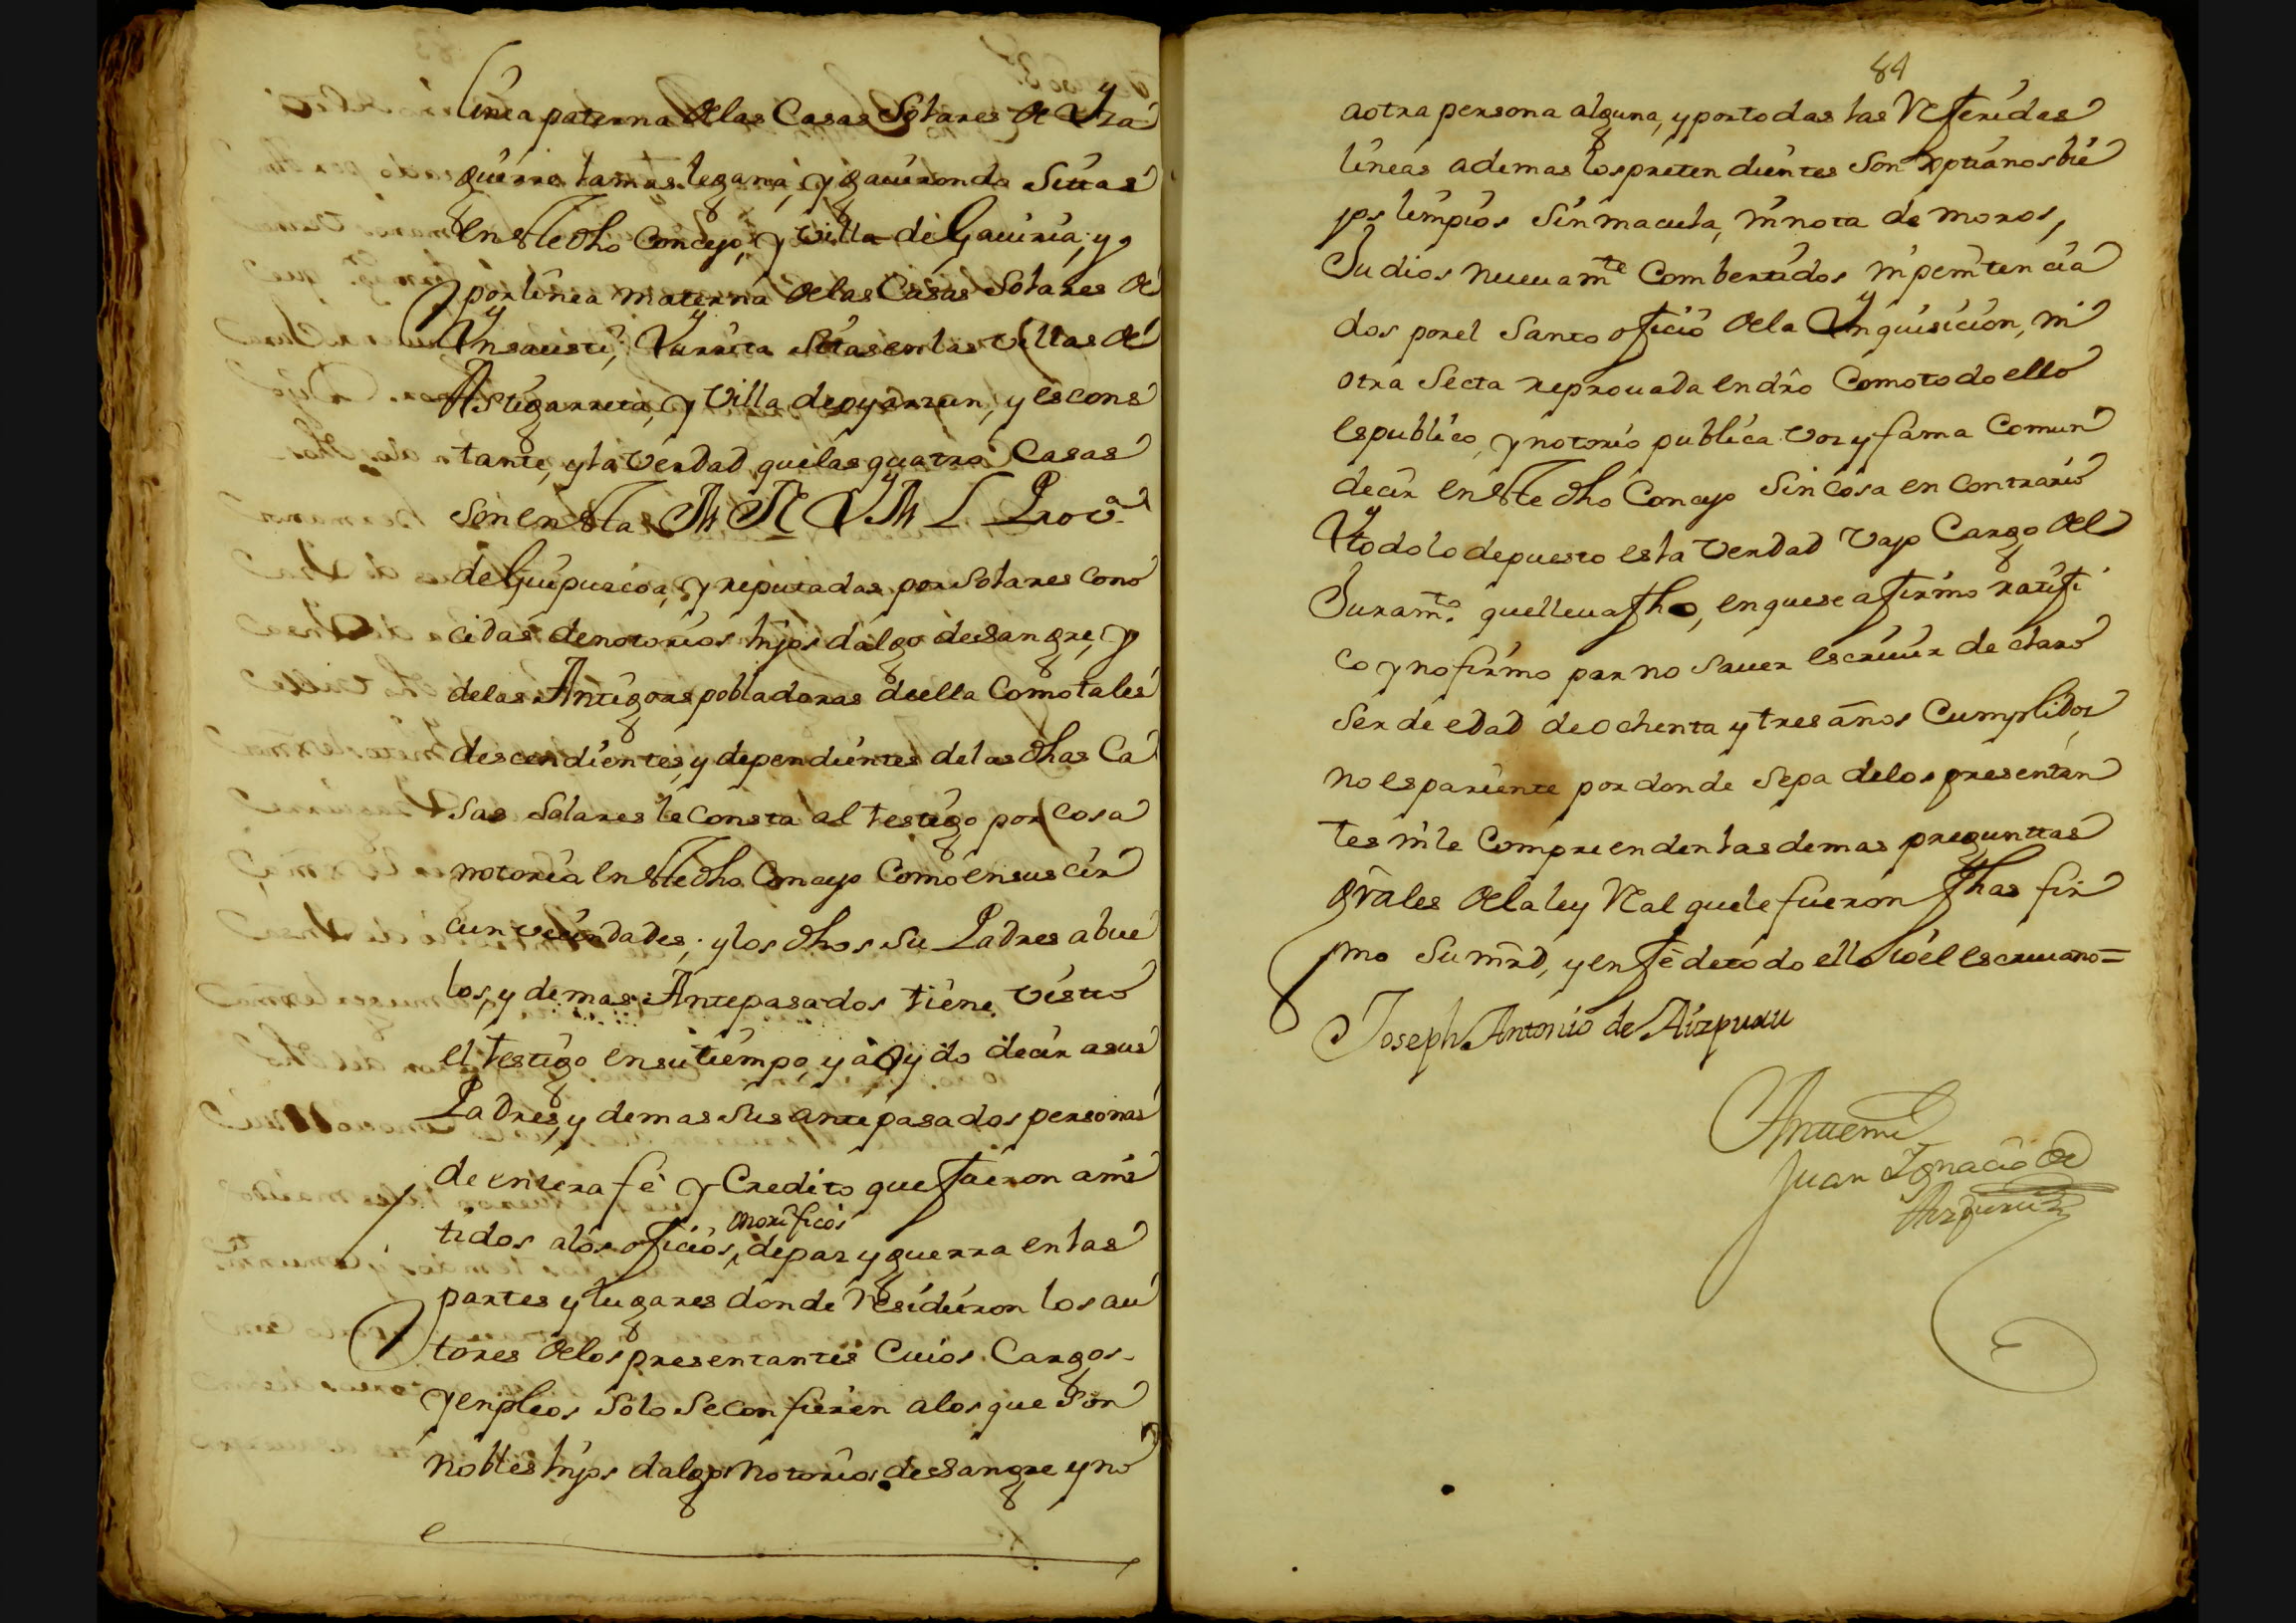 linea paterna de las Casas Solares de Yra
guirre lamas legana, y gauironda Sittas
en este dho Concejo, y villa de Gauiria, y
por linea materna de las Casas Solares de
Ynsausti, Yurrita Sitas en las villas de
Astigarreta, y Villa de oyarzun, y es cons
tante, y la verdad que las quatro Casas
son en esta M N Y M L Prov.ª
de Guipuzcoa, y reputadas por Solares cono
cidas de notorios hijos dalgo de sangre, y
de las Antigoas pobladoras de ella Como tales
descendientes, y dependientes de las dhas Ca
sas Solares le consta al testigo por cosa
notoria en este dho Concejo Como en sus cir
cunvecindades; y los dhos su Padres abue
los, y demas Antepasados tiene visto
el testigo en su tiempo, y a oydo decir a sus
Padres, y demas sus antepasados personas
de entera fè y Credito que fueron ami
tidos a los oficios, onorificos de paz y guerra en las
partes y lugares donde Residieron los au
tores de los presentantes Cuios Cargos
y enpleos solo se confieren a los que son
nobles hijos dalgo notorios de sangre y no
84
a otra persona alguna, y por todas las Referidas
lineas ademas los pretendientes Son xptianos bie
jos limpios Sin macula, ni nota de moros,
Judios nueuamte Combertidos ni penitencia
dos por el Santo oficio de la Ynquisicion, ni
otra Secta reprouada en dro Como todo ello
es publico, y notorio publica voz y fama Comun
decir en este dho Concejo Sin cosa en contrario
Y todo lo depuesto es la verdad vajo Cargo del
Juramto. que lleua fho, en que se afirmo ratifi
co y no firmo par no sauer escriuir declaro
ser de edad de ochenta y tres años Cumplidos
no es pariente por donde sepa de los presentan
tes ni le Comprenden las demas preguntas
grales de la ley Real que le fueron fhas fir
mo su mrd, y en fè de todo ello io el escriuano=
Joseph Antonio de Aizpuru
Antemi
Juan Ignacio de
Aizpuru